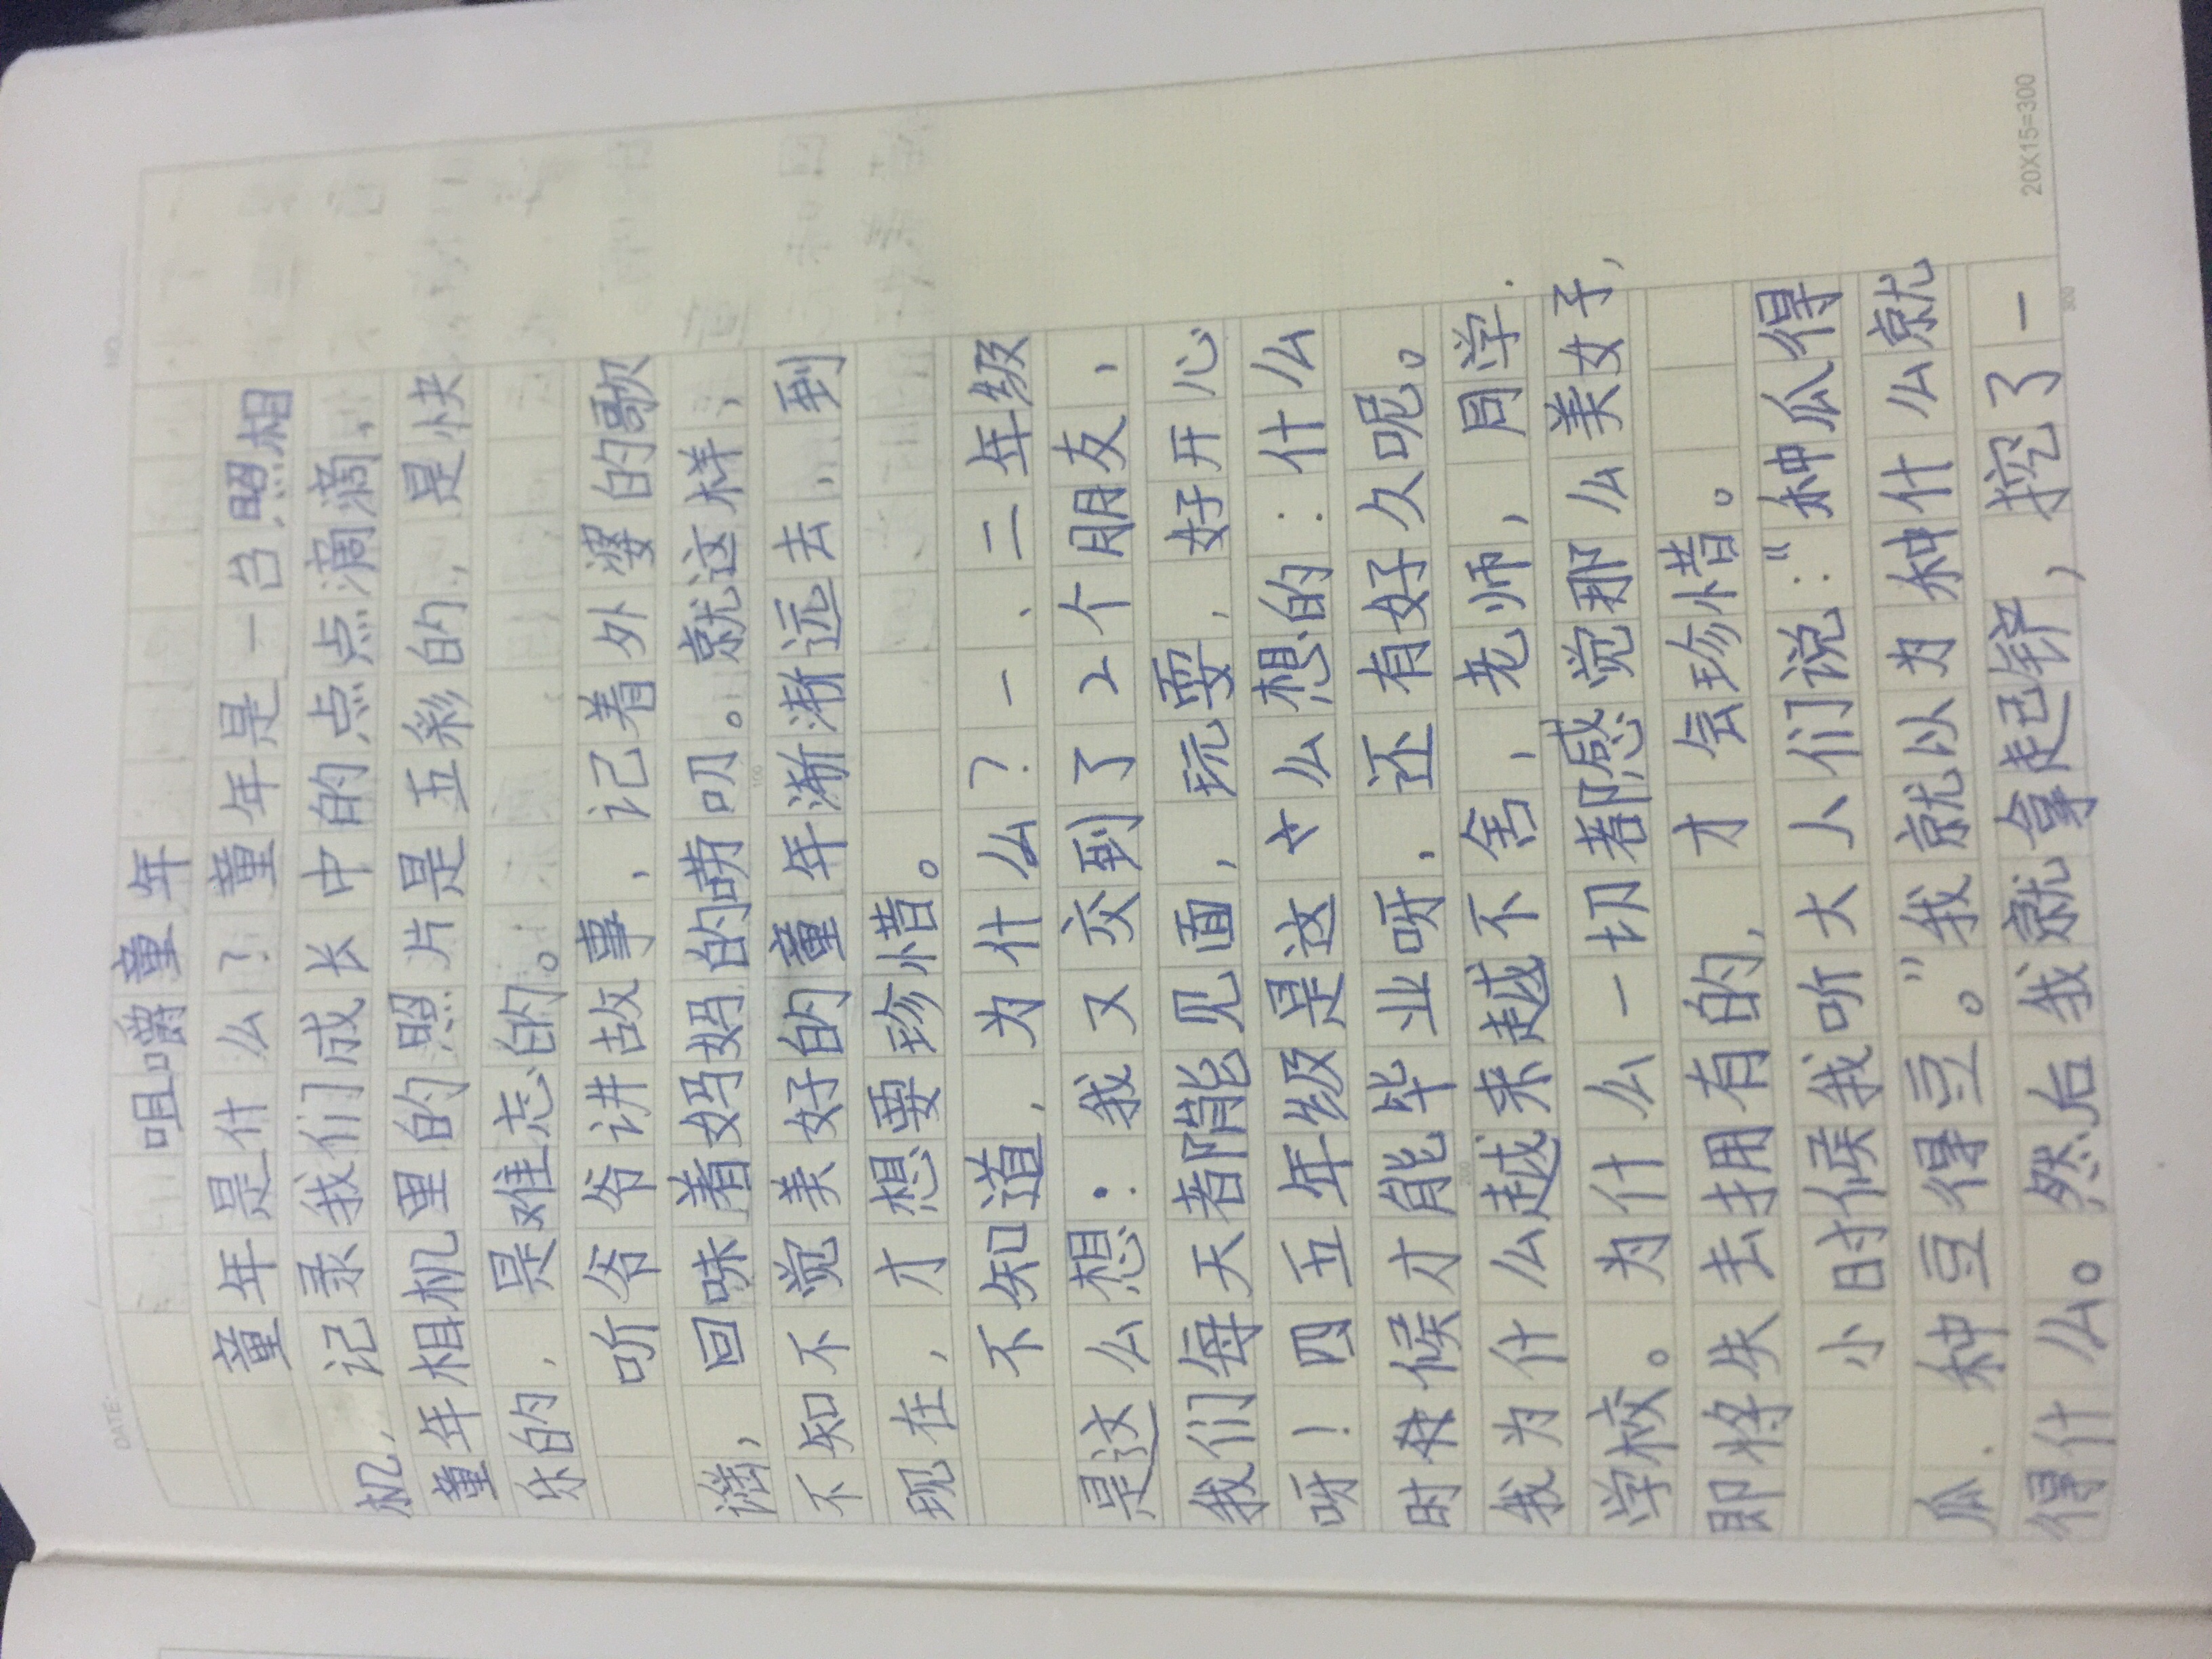 咀嚼童年
童年是什么？童年是一台照相
机，记录我们成长中的点点滴滴，
童年相机里的照片是五彩的，是快
乐的，是难忘的。
听爷爷讲故事，记着外婆的歌
谣，回味着妈妈的唠叨。就这样，
不知不觉美好的童年渐渐远去，到
现在，才想要珍惜。
不知道，为什么？一、二年级
是这么想：我又交到了2个朋友，
我们每天都能见面，玩耍，好开心
呀！四五年级是这么想的：什么
时候才能毕业呀，还有好久呢。
我为什么越来越不舍，老师，同学，
学校。为什么一切都感觉那么美好，
即将失去拥有的，才会珍惜。
小时候我听大人们说：“种瓜得
瓜，种豆得豆。”我就以为种什么就
得什么。然后我就拿起铲，挖了一
DATE:
NO.
100
200
300
20X15=300